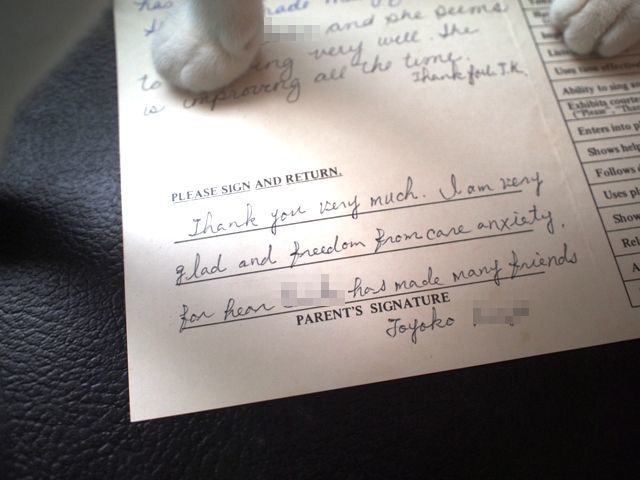 has made many
and she seems
to very well. She
is improving all the time.
Thank for T.K.
PLEASE SIGN AND RETURN.
Thank you very much. I am very
glad and freedom from care anxiety,
for hear has made many friends
PARENT'S SIGNATURE
Toyoko
Uses time effectiv
Ability to sing an
Exhibits courte
("Please", "Than
Enters into pl
Shows help
Follows d
Uses pl
Show
Rel
A